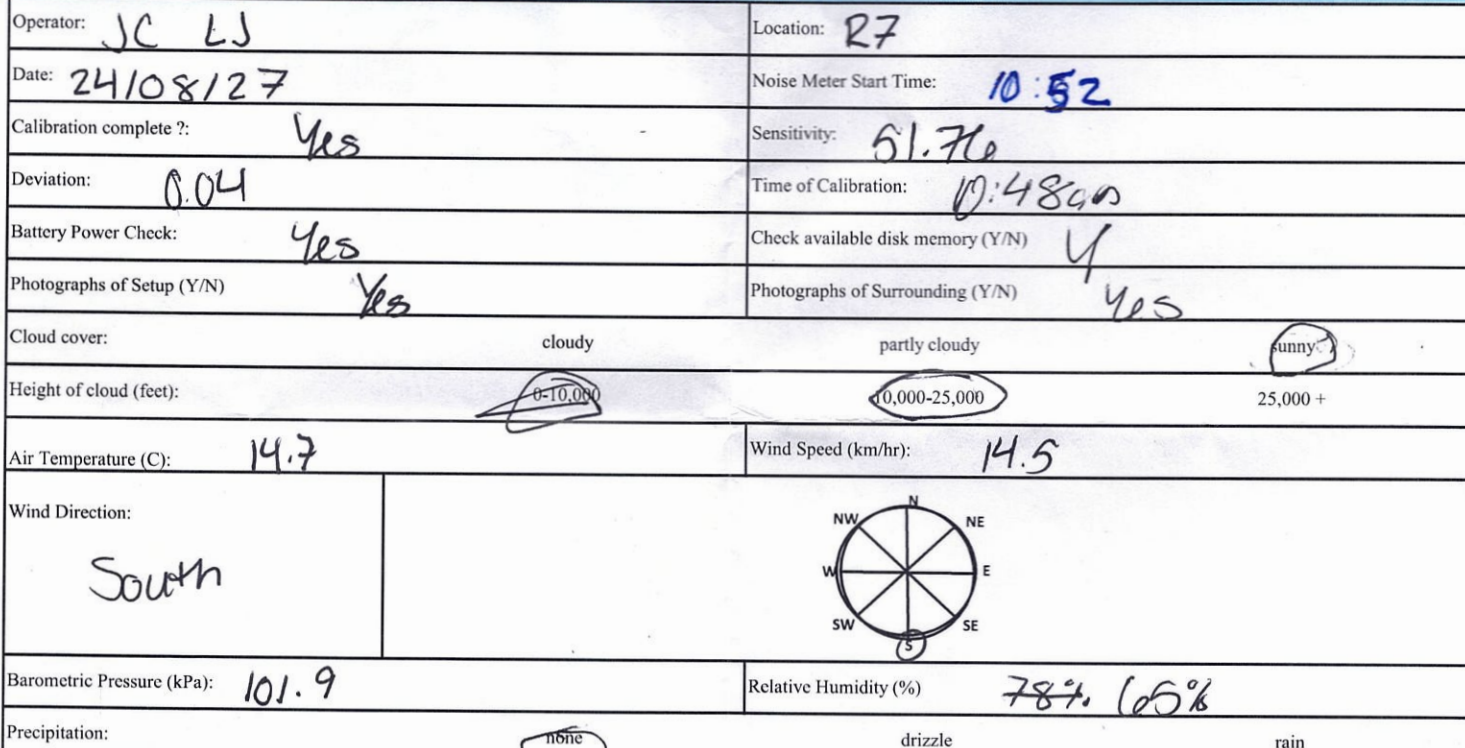 Operator: JC LJ Location: R7
Date: 24/08/27 Noise Meter Start Time: 10:52
Calibration complete ?: Yes Sensitivity: 51.76
Deviation: 0.04 Time of Calibration: 10:48am
Battery Power Check: Yes Check available disk memory (Y/N) Y
Photographs of Setup (Y/N) Yes Photographs of Surrounding (Y/N) Yes
Cloud cover: cloudy partly cloudy sunny
Height of cloud (feet): 0-10,000 10,000-25,000 25,000 +
Air Temperature (C): 14.7 Wind Speed (km/hr): 14.5
Wind Direction:
South
N
NW NE
W E
SW SE
S
Barometric Pressure (kPa): 101.9 Relative Humidity (%) 78% 65%
Precipitation: none drizzle rain